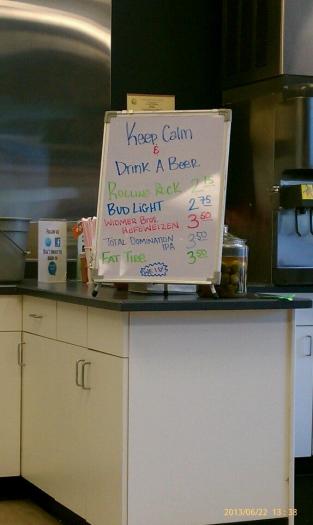 Keep Calm
&
Drink A Beer
Rolling Rock 2.75
Bud Light 2.75
Widmer Bros. Hefeweizen 3.50
Total Domination IPA 3.50
Fat Tire 3.50
Follow us
2013/06/22 13:38